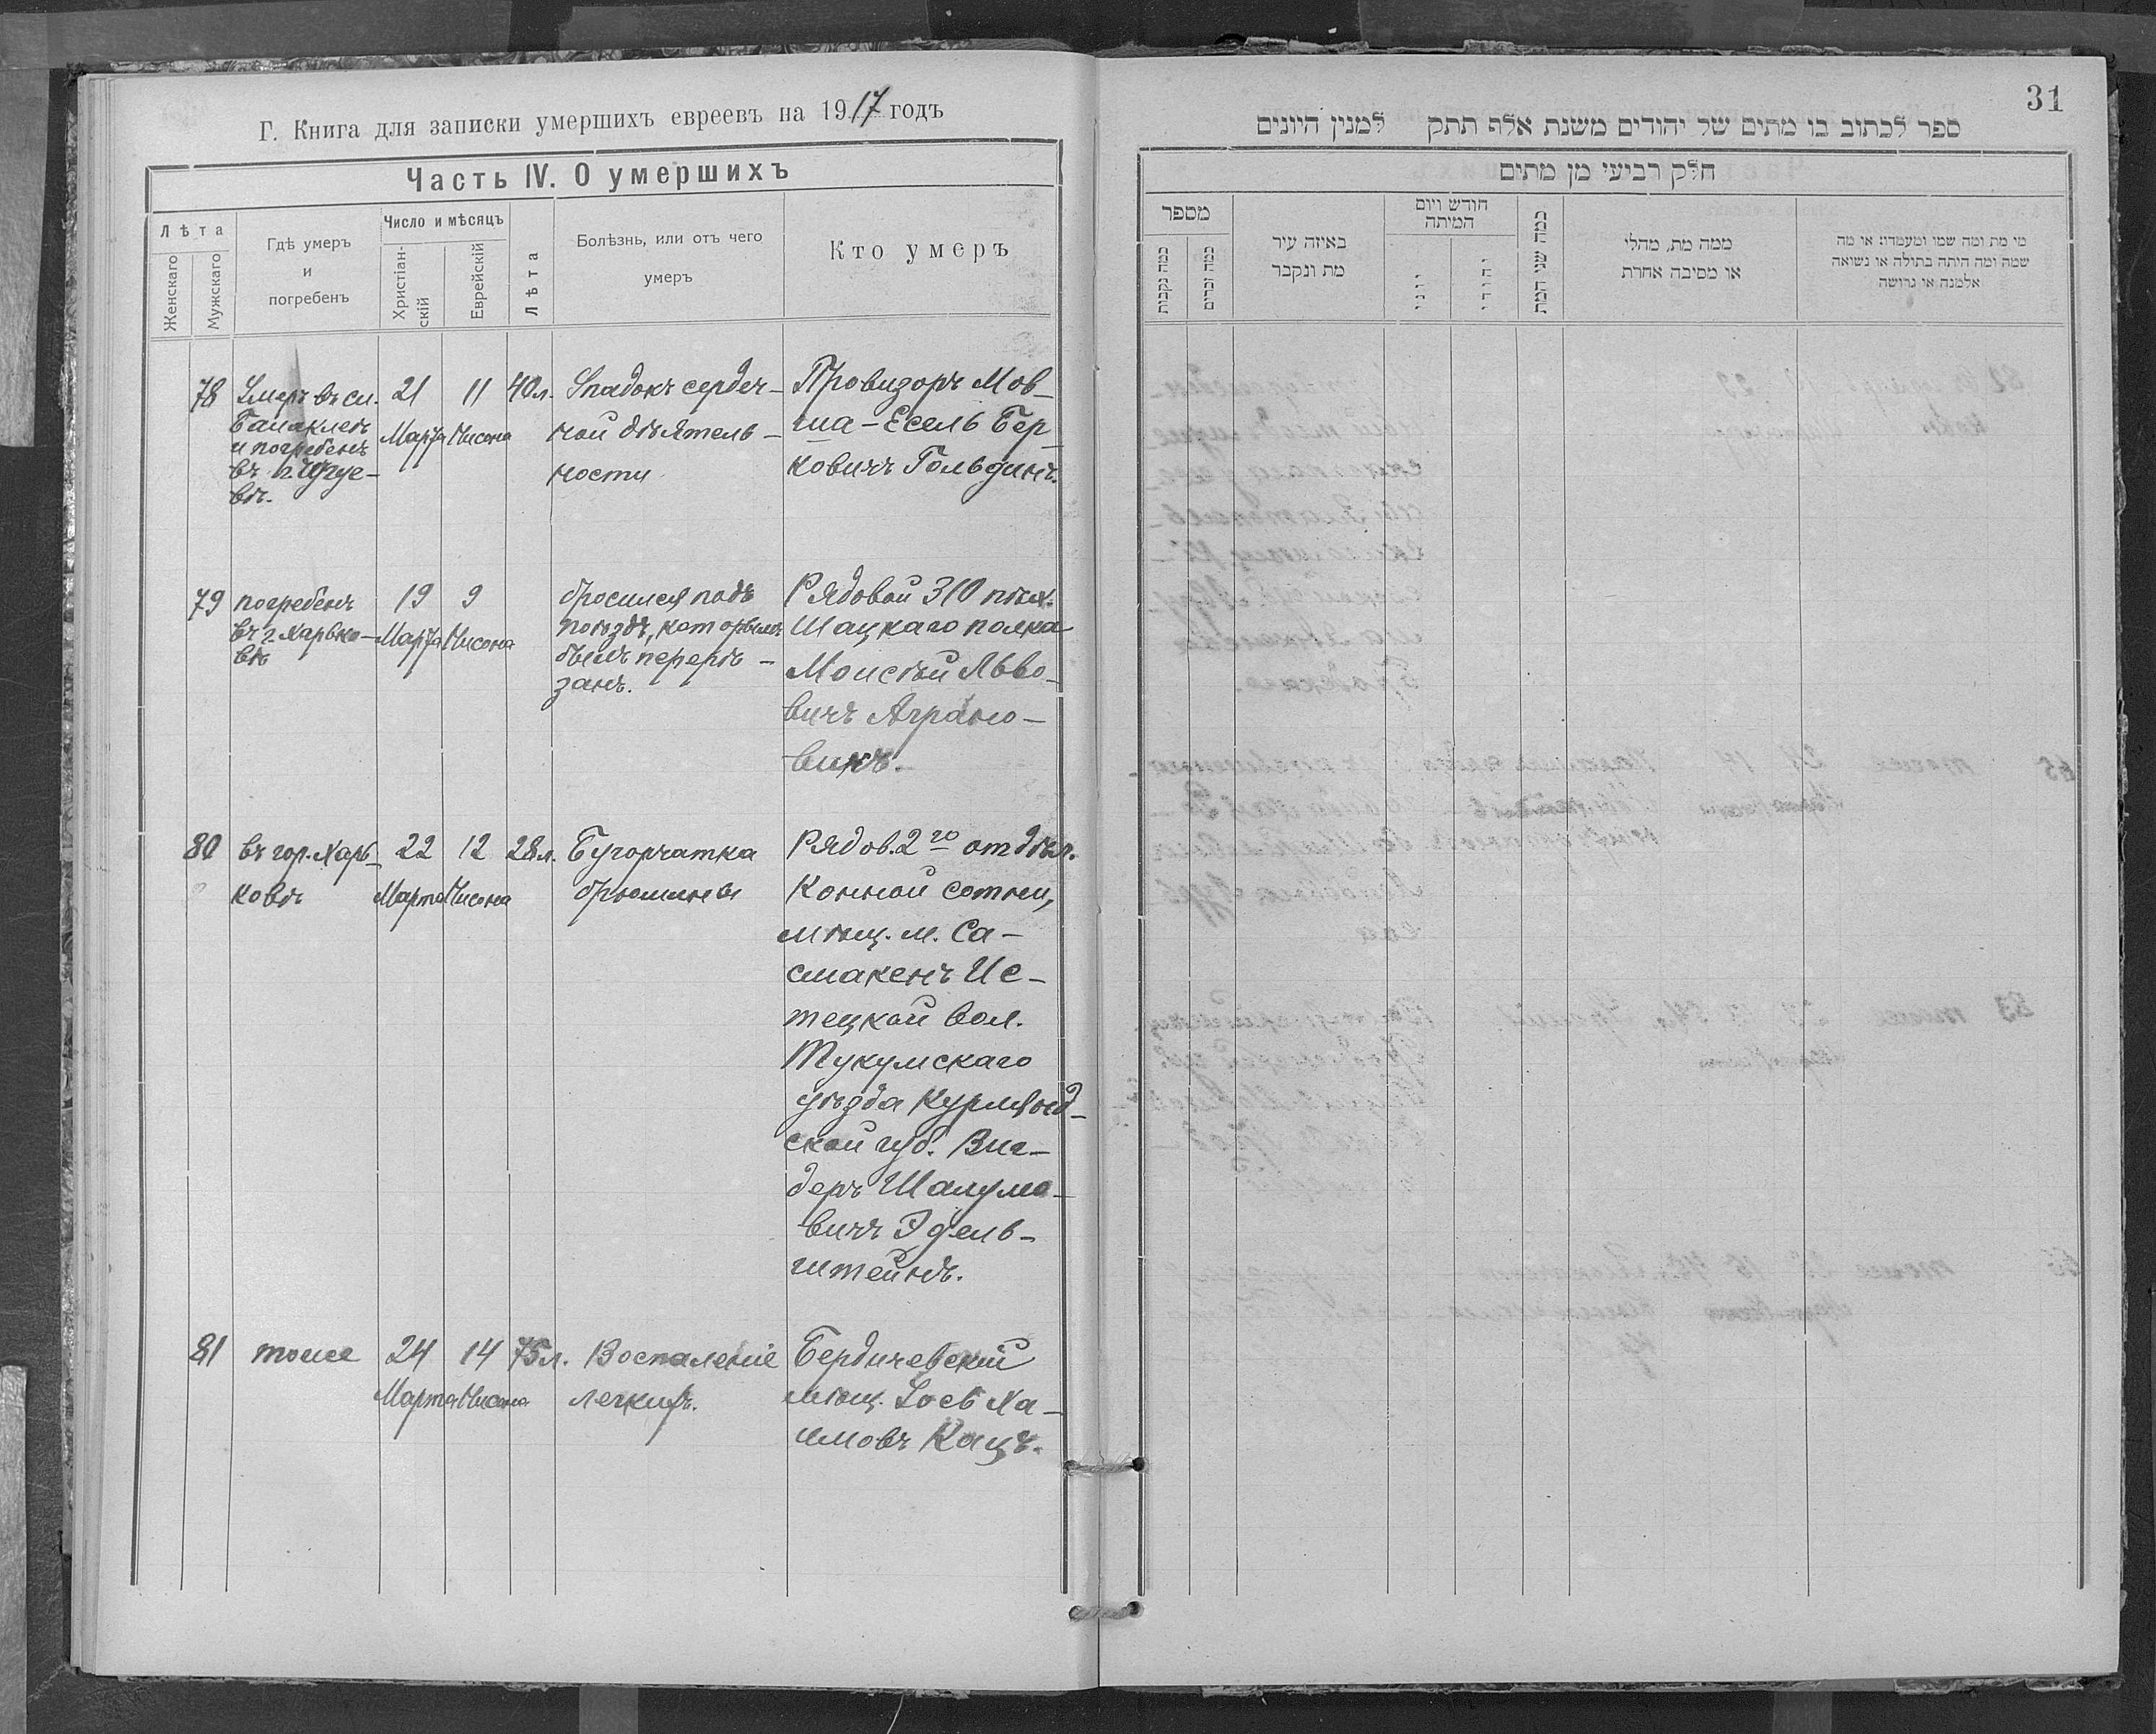 Г. Книга для записки умершихъ евреевъ на 1917 годъ
Часть IV. О умершихъ
Лѣта
Женскаго
Мужскаго
Гдѣ умеръ
и
погребенъ
Число и мѣсяцъ
Христіан-
скій
Еврейскій
Лѣта
Болѣзнь, или отъ чего
умеръ
Кто умеръ
78
Умеръ въ сл.
Балаклеѣ
и погребенъ
въ г.
21
Марта
11
Нисона
40 л.
Упадокъ сердеч-
ной дѣятель-
ности
Провизоръ Мов-
ша-Есель Бер-
ковичъ Гольдинъ.
79
погребенъ
въ г. Харько-
вѣ
19
Марта
9
Нисона
бросился подъ
поѣздъ, которымъ
былъ перерѣ-
занъ.
Рядовой 310 пѣх.
Шацкаго полка
Моисѣй Льво-
вичъ Аграно-
вичъ.
80
въ гор. Харь-
ковѣ
22
Марта
12
Нисона
28 л.
Бугорчатка
брюшины
Рядов. 2го отдѣл.
Конной сотни,
мѣщ. м. Са-
смакенъ
тецкой вол.
Тукумскаго
уѣзда Курлянд-
ской губ. Виг-
деръ Шалумо-
вичъ Эдель-
штейнъ.
81
тоже
24
Марта
14
Нисона
75 л.
Воспаленіе
легкихъ.
Бердичевскій
мѣщ. Іось Ха-
имовъ Кацъ.
31
ספר לכתוב בו מתים של יהודים משנת אלף תתק למנין היונים
חלק רביעי מן מתים
מספר
כמה נקבות
כמה זכרים
באיזה עיר
מת ונקבר
חודש ויום
המיתה
יוני
יהודי
כמה שני המת
ממה מת, מחלי
או מסיבה אחרת
מי מת ומה שמו ומעמדו: או מה
שמה ומה היתה בתולה או נשואה
אלמנה או גרושה